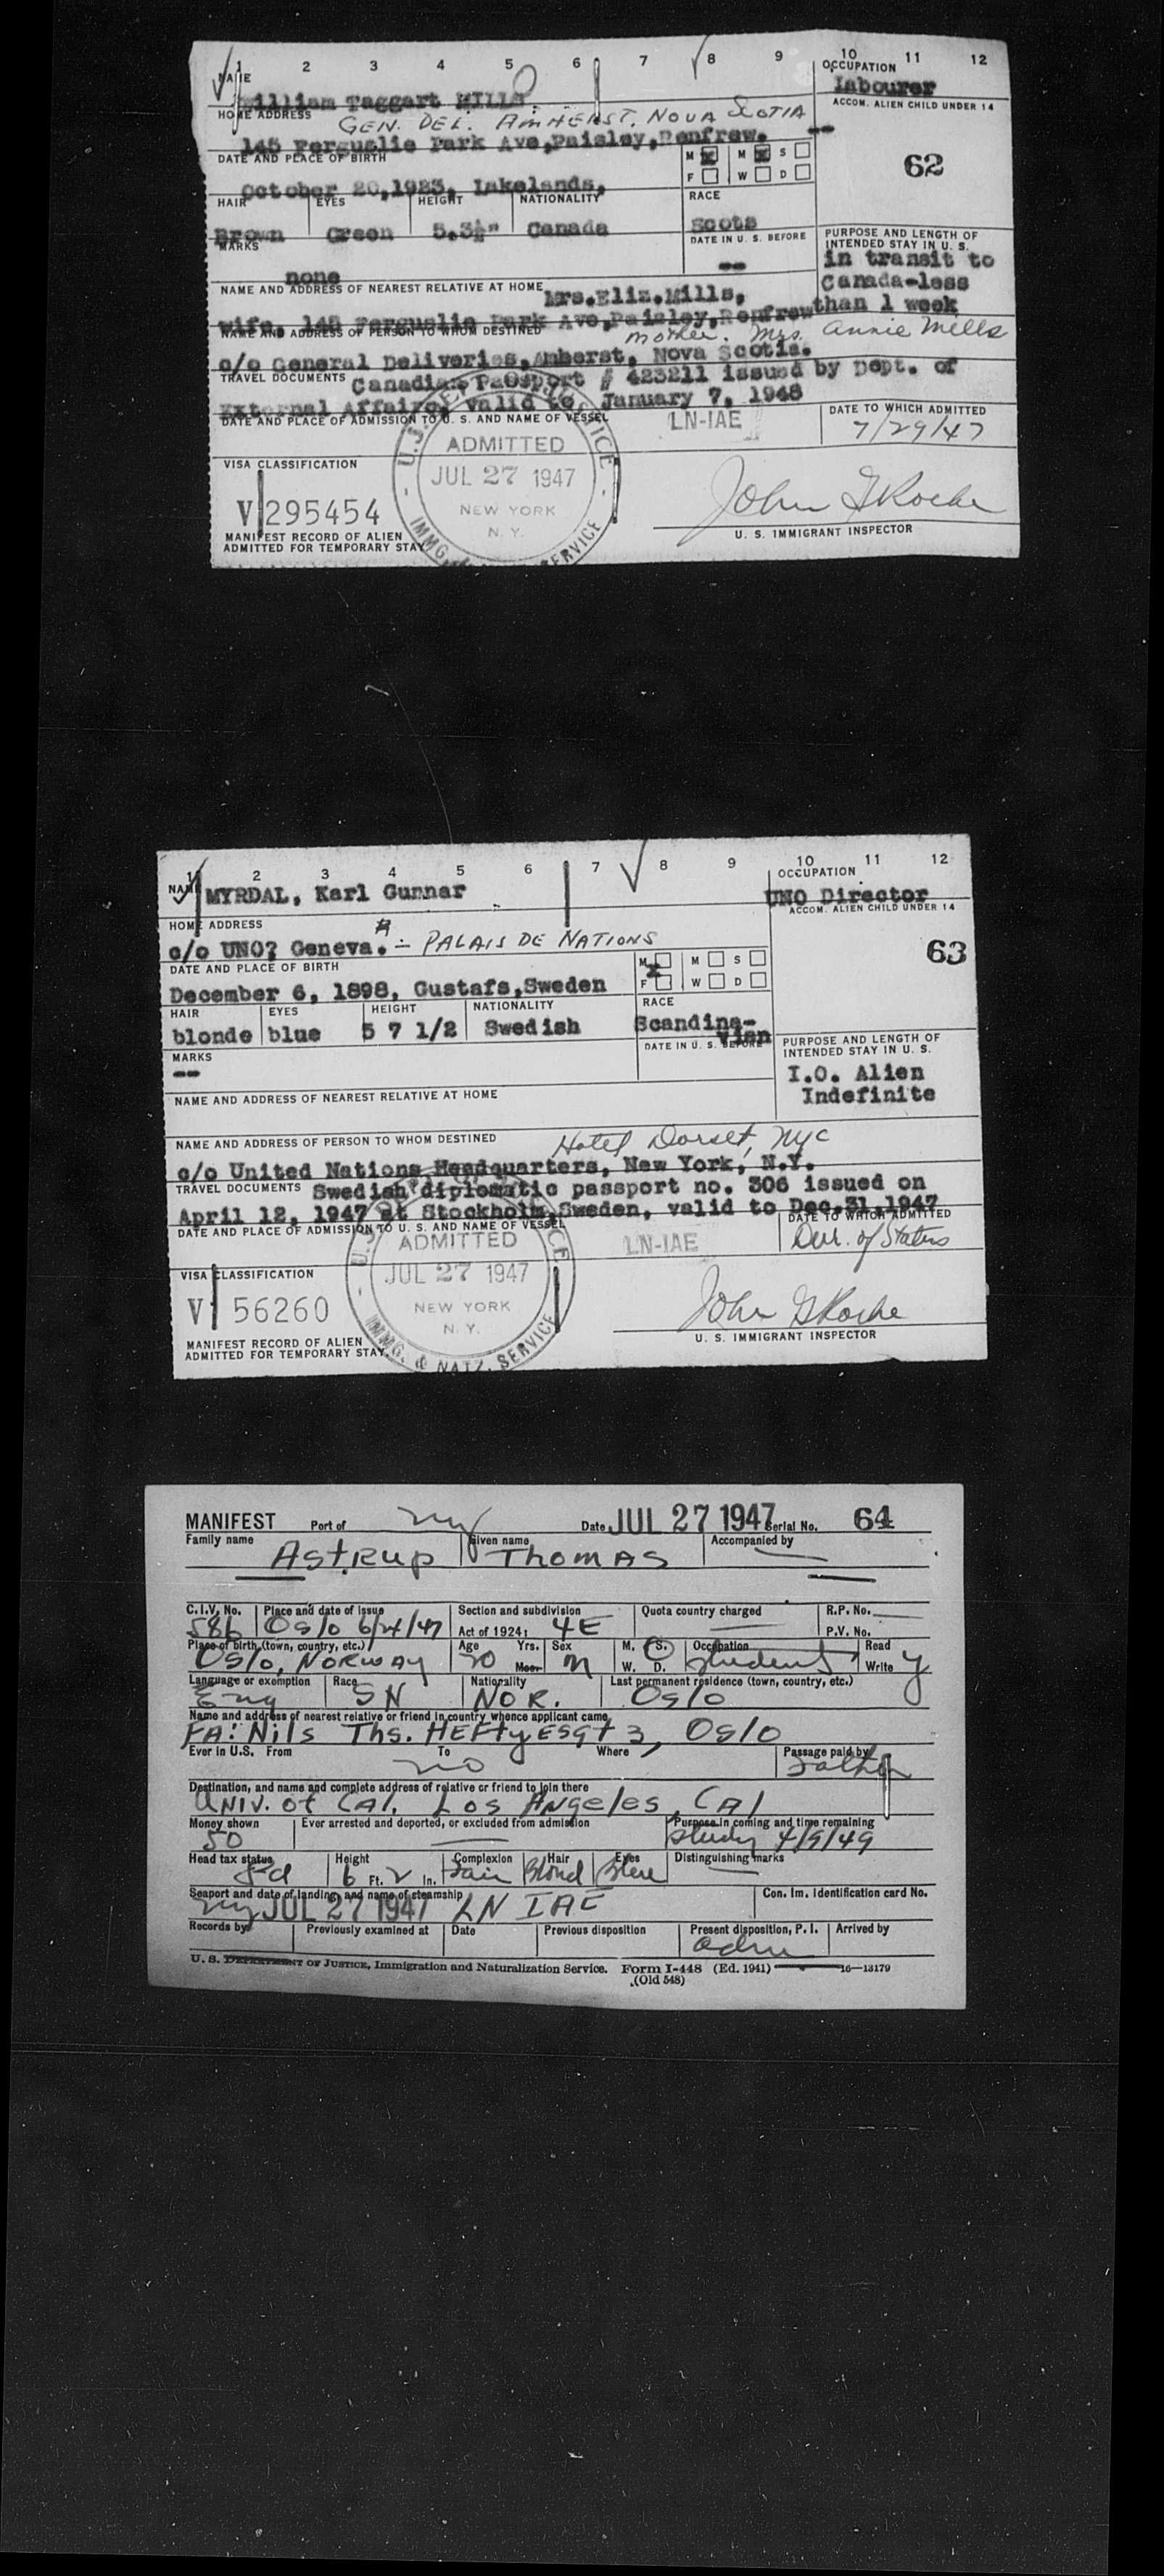 1 2 3 4 5 6 7 8 9 10 11 12
NAME OCCUPATION
William Taggart MILLS. Labourer
HOME ADDRESS GEN. DEL. AMHERST, NOVA SCOTIA ACCOM. ALIEN CHILD UNDER 14
145 Ferguslie Park Ave,Paisley,Renfrew. --
DATE AND PLACE OF BIRTH M X M X S 62
October 20,1923, Lakelands, F W D
HAIR EYES HEIGHT NATIONALITY RACE
Brown Green 5.3½" Canada Scots
MARKS DATE IN U. S. BEFORE PURPOSE AND LENGTH OF INTENDED STAY IN U. S.
none -- in transit to
NAME AND ADDRESS OF NEAREST RELATIVE AT HOME Mrs.Eliz.Mills, Canada-less
wife, 145 Ferguslie Park Ave,Paisley,Renfrew than 1 week
NAME AND ADDRESS OF PERSON TO WHOM DESTINED mother. Mrs. Annie Mills
c/o General Deliveries,Amherst, Nova Scotia.
TRAVEL DOCUMENTS Canadian Passport # 423211 issued by Dept. of
External Affairs, valid to January 7, 1948
DATE AND PLACE OF ADMISSION TO U. S. AND NAME OF VESSEL LN-IAE DATE TO WHICH ADMITTED
7/29/47
ADMITTED
VISA CLASSIFICATION JUL 27 1947
V 295454 NEW YORK N. Y. John G Roche
MANIFEST RECORD OF ALIEN U. S. IMMIGRANT INSPECTOR
ADMITTED FOR TEMPORARY STAY IMMG. SERVICE
1 2 3 4 5 6 7 8 9 10 11 12
NAME MYRDAL, Karl Gunnar OCCUPATION
UNO Director
HOME ADDRESS ACCOM. ALIEN CHILD UNDER 14
c/o UNO? Geneva. - PALAIS DE NATIONS 63
DATE AND PLACE OF BIRTH M X M S
December 6, 1898, Gustafs,Sweden F W D
HAIR EYES HEIGHT NATIONALITY RACE
blonde blue 5 7 1/2 Swedish Scandina-
vian
MARKS DATE IN U. S. BEFORE PURPOSE AND LENGTH OF INTENDED STAY IN U. S.
-- I.O. Alien
Indefinite
NAME AND ADDRESS OF NEAREST RELATIVE AT HOME
NAME AND ADDRESS OF PERSON TO WHOM DESTINED Hotel Dorset, NYC
c/o United Nations Headquarters, New York, N.Y.
TRAVEL DOCUMENTS Swedish diplomatic passport no. 306 issued on
April 12, 1947 at Stockholm,Sweden, valid to Dec.31,1947
DATE AND PLACE OF ADMISSION TO U. S. AND NAME OF VESSEL DATE TO WHICH ADMITTED
ADMITTED LN-IAE Dur. of Status
VISA CLASSIFICATION JUL 27 1947
V 56260 NEW YORK N. Y. John G Roche
MANIFEST RECORD OF ALIEN U. S. IMMIGRANT INSPECTOR
ADMITTED FOR TEMPORARY STAY. IMMG. & NATZ. SERVICE
MANIFEST Port of NY Date JUL 27 1947 Serial No. 64
Family name Given name Accompanied by
Astrup Thomas
C.I.V. No. Place and date of issue Section and subdivision Quota country charged R.P. No.
586 Oslo 6/24/47 Act of 1924: 4E P.V. No.
Place of birth (town, country, etc.) Age Yrs. Sex M. S. Occupation Read
Oslo, Norway 20 Mos. M W. D. Student Write Y
Language or exemption Race Nationality Last permanent residence (town, country, etc.)
Eng SN NOR. Oslo
Name and address of nearest relative or friend in country whence applicant came
FA: Nils Ths. Heftyesgt 3, Oslo
Ever in U.S. From To Where Passage paid by
no father
Destination, and name and complete address of relative or friend to join there
Univ. of Cal. Los Angeles, Cal
Money shown Ever arrested and deported, or excluded from admission Purpose in coming and time remaining
50 study 4/9/49
Head tax status Height Complexion Hair Eyes Distinguishing marks
6 Ft. 2 In. Fair Blond Blue
Seaport and date of landing, and name of steamship Con. Im. Identification card No.
NY JUL 27 1947 LN IAE
Records by Previously examined at Date Previous disposition Present disposition, P. I. Arrived by
adm
U. S. DEPARTMENT OF JUSTICE, Immigration and Naturalization Service. Form I-448 (Ed. 1941) 16—13179
(Old 548)